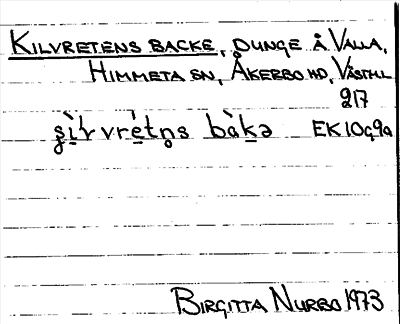 KILVRETENS BACKE, DUNGE Å VALLA,
HIMMETA SN, ÅKERBO HD, VÄSTML
217
bàka EK10G9a
BIRGITTA NURBO 1973